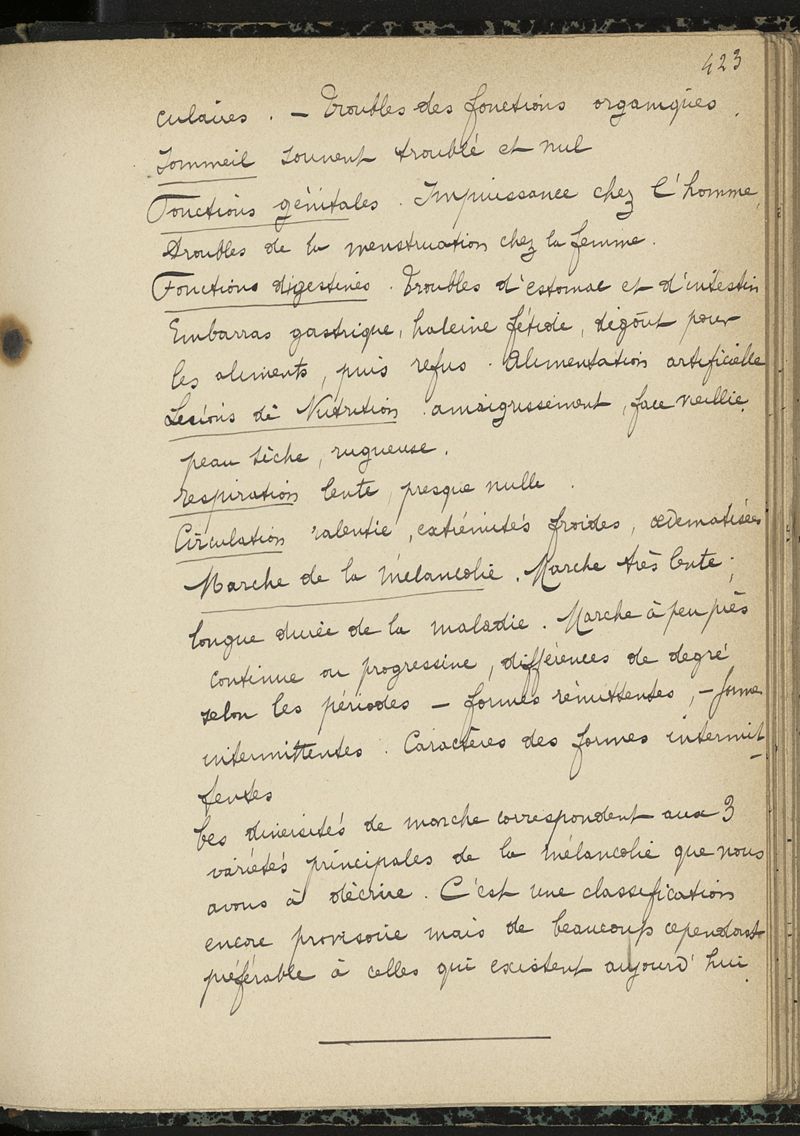 423
culaires. — Troubles des fonctions organiques.
Sommeil souvent troublé et nul
Fonctions génitales. Impuissance chez l'homme,
troubles de la menstruation chez la femme.
Fonctions digestives. Troubles d'estomac et d'intestin
Embarras gastrique, haleine fétide, dégoût pour
les aliments, puis refus. Alimentation artificielle
Lésions de Nutrition. amaigrissement, face vieillie,
peau sèche, rugueuse.
respiration lente, presque nulle.
Circulation ralentie, extrémités froides, œdematisées
Marche de la mélancolie. Marche très lente;
longue durée de la maladie. Marche à peu près
continue ou progressive, différences de degré
selon les périodes — formes rémittentes, — forme
intermittentes. Caractères des formes intermit-
tentes
Ces diversités de marche correspondent aux 3
variétés principales de la mélancolie que nous
avons à décrire. C'est une classification
encore provisoire mais de beaucoup cependant
préférable à celles qui existent aujourd'hui.